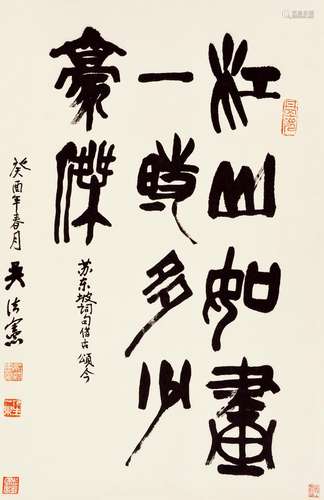 江山如畫
一時多少
豪傑
苏东坡词句借古頌今
癸酉年春月
吴法憲